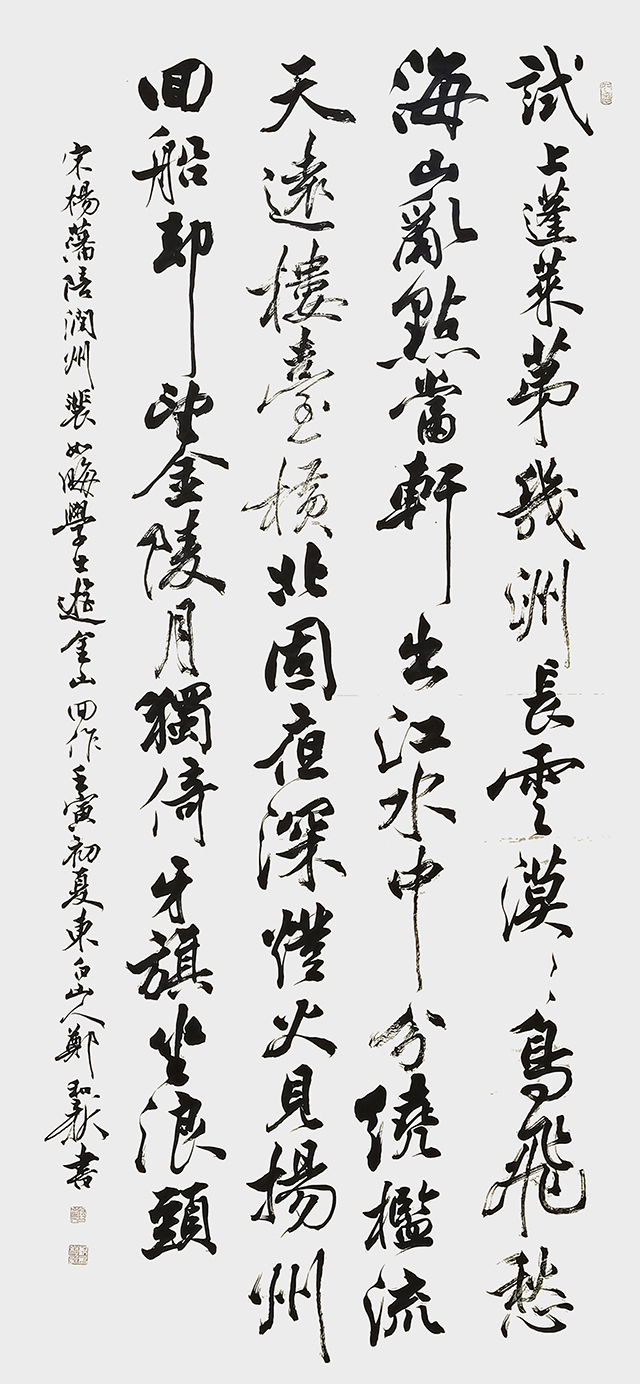 試上蓬萊第幾洲長雲漠漠鳥飛愁
海山亂點當軒出江水中分繞檻流
天遠樓臺橫北固夜深燈火見揚州
回船却望金陵月獨倚牙旗坐浪頭
宋楊蟠陪潤州裴如晦學士遊金山回作壬寅初夏東白山人鄭和新書